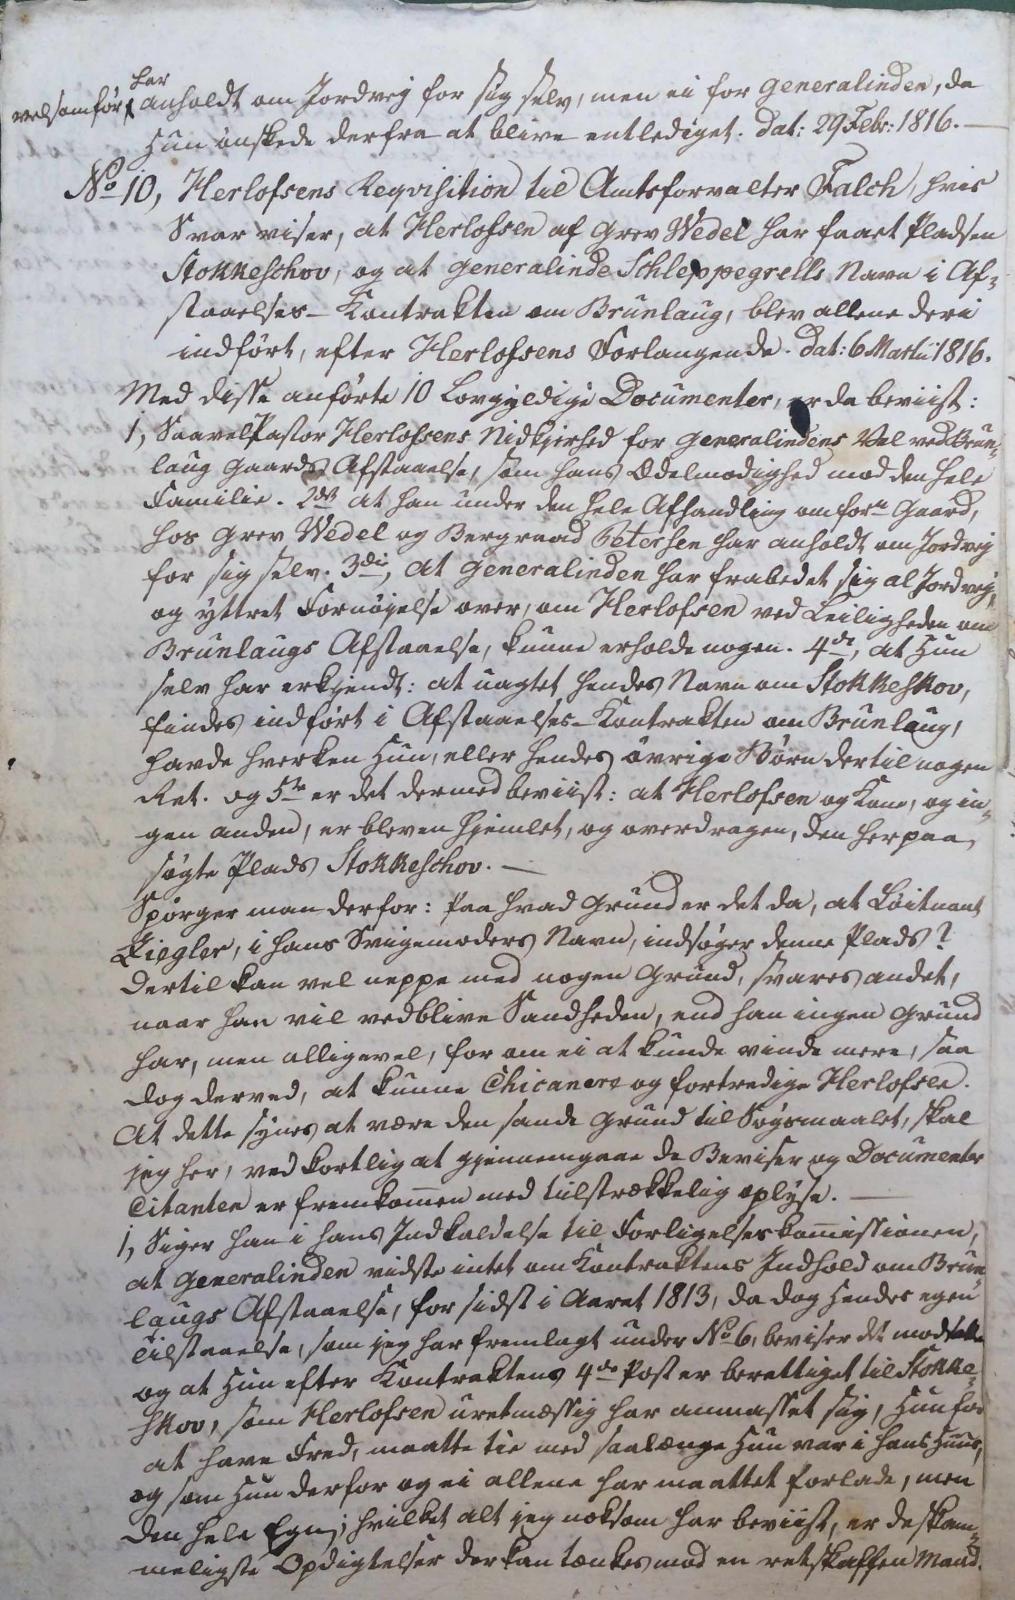 har
velsomfør anholdt om Jordvej for sig selv, men ei for Generalinden, da
Hun ønskede derfra at blive entlediget. Dat: 29 Febr: 1816. —
No 10, Herlofsens Reqvisition til Amtsforvalter Falch, hvis
Svar viser, at Herlofsen af Grev Wedel har faaet Pladsen
Stokkeschov, og at Generalinde Schleppegrells Navn i Af-
staaelses-Kontrakten om Brunlaug, blev allene deri
indført, efter Herlofsens Forlangende. Dat: 6 Martii 1816.
Med disse anførte 10 Lovgyldige Documenter, er da beviist:
1, Saavel Pastor Herlofsens Nidkjerhed for Generalindens Vel ved Brun-
laug Gaards Afstaaelse, som hans Ædelmodighed mod den hele
Familie. 2det at han under den hele Afhandling om forn Gaard,
hos Grev Wedel og Bergraad Petersen har anholdt om Jordvej
for sig selv. 3die, at Generalinden har frabedet sig al Jordvej,
og yttret Fornøjelse over, om Herlofsen ved Leiligheden om
Brunlaugs Afstaaelse, kunne erholde nogen. 4de, at Hun
selv har erkjendt: at uagtet hendes Navn om Stokkeskov,
findes indført i Afstaaelses-Kontrakten om Brunlaug,
havde hverken Hun, eller hendes øvrige Børn dertil nogen
Ret. og 5te er det dermed beviist: at Herlofsen og Kone, og in-
gen anden, er bleven hjemlet, og overdragen, den herpaa
søgte Plads Stokkeschov. —
Spørger man derfor: Paa hvad Grund er det da, at Løitnant
Ziegler, i hans Svigemoders Navn, indsøger denne Plads?
Dertil kan vel neppe med nogen Grund, svares andet,
naar han vil vedblive Sandheden, end han ingen Grund
har, men alligevel, for om ei at kunde vinde mere, saa
dog derved, at kunne Chicanere og fortredige Herlofsen.
At dette synes at være den sande Grund til Søgsmaalet, skal
jeg her, ved kortlig at gjennemgaae de Beviser og Documenter
Citanten er fremkommen med tilstrækkelig oplyse. —
1, Siger han i hans Indkaldelse til Forligelseskommissionen,
at Generalinden vidste intet om Kontraktens Indhold om Brun
laugs Afstaaelse, før sidst i Aaret 1813, da dog Hendes egen
Tilstaaelse, som jeg har fremlagt under No 6, beviser det modsatte
og at Hun efter Kontraktens 4de Post er berettiget til Stokke-
skov, som Herlofsen uretmæssig har anmasset sig, Hun for
at have Fred, maatte tie med saalænge Hun var i hans Huus,
og som Hun derfor og ei allene har maattet forlade, men
den hele Egn; hvilket alt jeg noksom har beviist, er de skam-
meligste Opdigtelser der kan tænkes mod en retskaffen Mand.